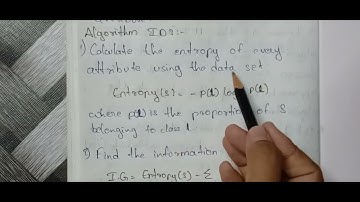 Algorithm ID3:-
1) Calculate the entropy of every
attribute using the data set
Entropy(S) = - p(I) log p(I)
where p(I) is the proportion of S
belonging to class I.
2) Find the information
I.G = Entropy(S) - Σ